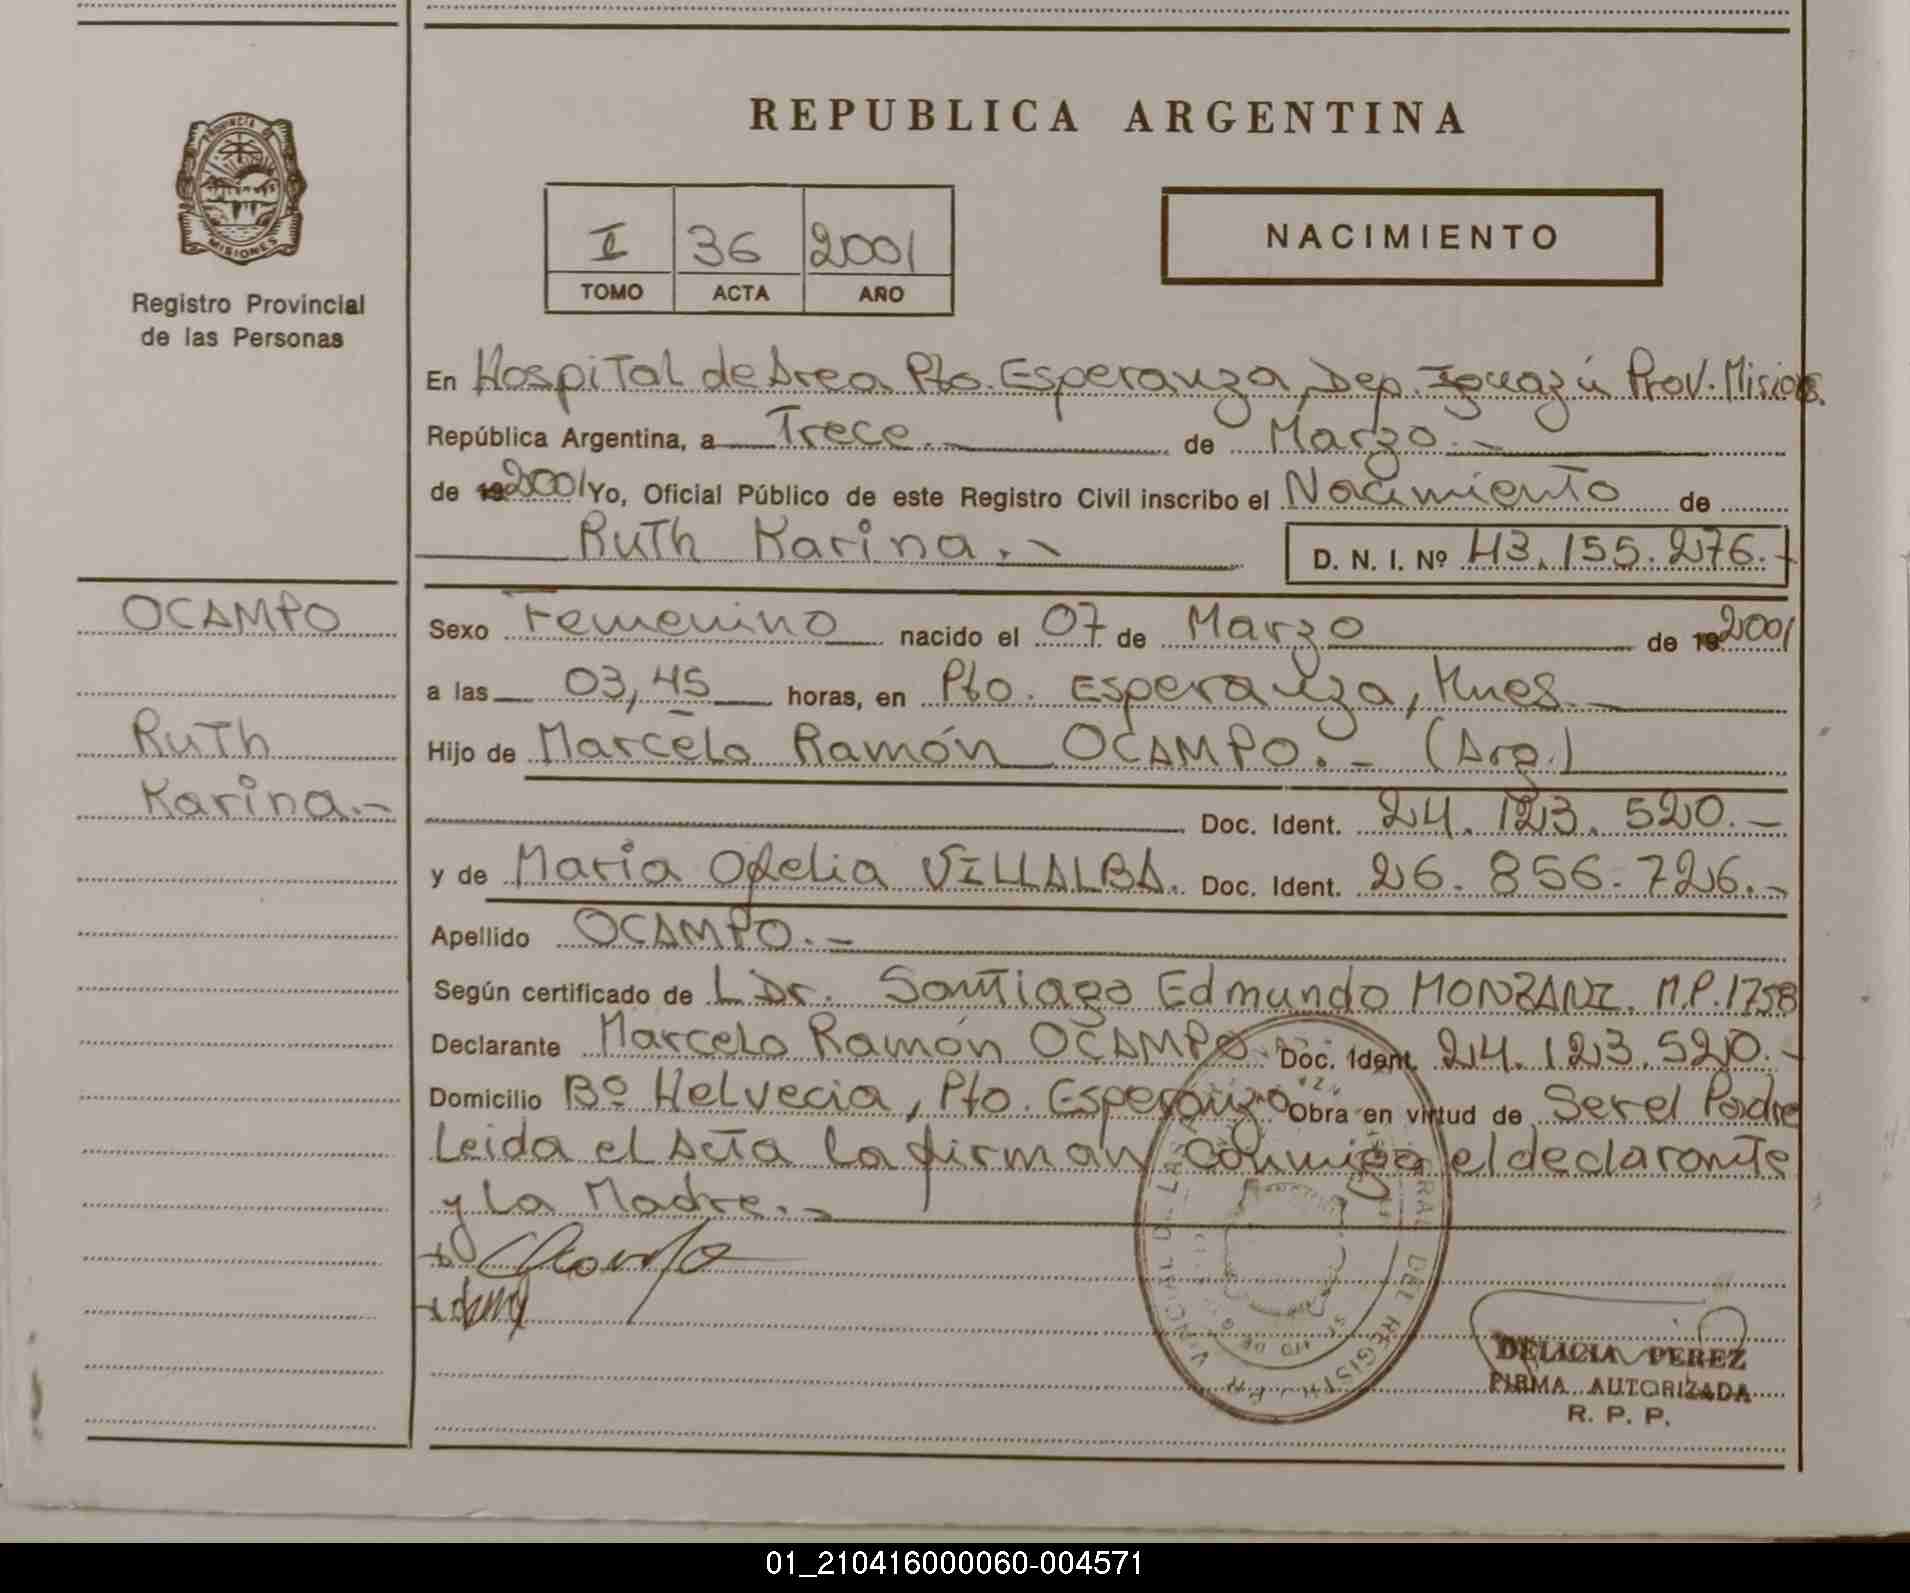 REPUBLICA ARGENTINA
PROVINCIA DE
MISIONES
Registro Provincial
de las Personas
I 36 2001
TOMO ACTA AÑO
NACIMIENTO
En Hospital de Area Pto. Esperanza, Dep. Iguazú Prov. Misiones.
República Argentina, a Trece.- de Marzo.-
de 19 2001 Yo, Oficial Público de este Registro Civil inscribo el Nacimiento de
Ruth Karina.- D. N. I. Nº 43.155.276.-
OCAMPO
Ruth
Karina.-
Sexo Femenino nacido el 07 de Marzo de 19 2001
a las 03,45 horas, en Pto. Esperanza, Mnes.-
Hijo de Marcelo Ramón OCAMPO.- (Arg.)
Doc. Ident. 24.123.520.-
y de Maria Ofelia VILLALBA. Doc. Ident. 26.856.726.-
Apellido OCAMPO.-
Según certificado de L Dr. Santiago Edmundo MONZANI. M.P. 1758
Declarante Marcelo Ramón OCAMPO Doc. Ident. 24.123.520.-
Domicilio Bº Helvecia, Pto. Esperanza Obra en virtud de Ser el Padre
Leida el Acta la firman conmigo el declarante
y La Madre.-
DELICIA PEREZ
FIRMA AUTORIZADA
R. P. P.
01_210416000060-004571